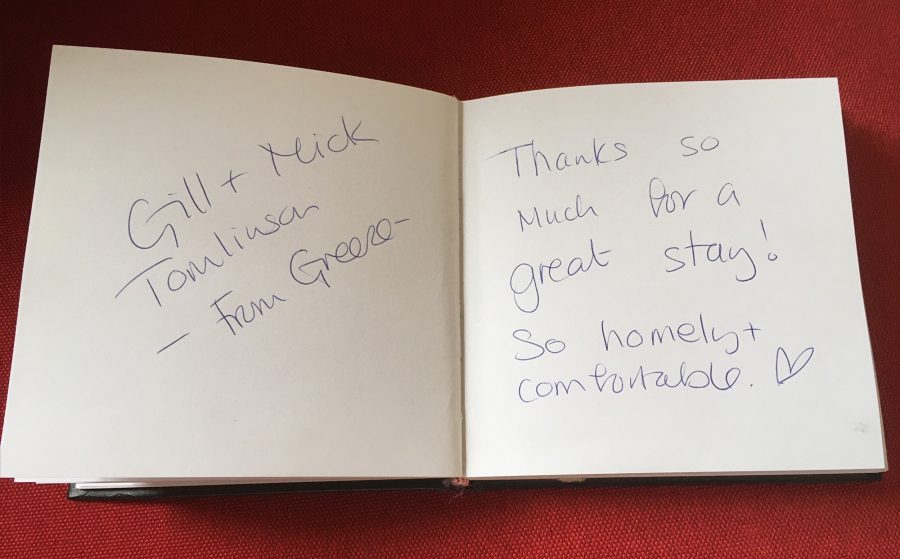 Gill + Mick
Tomlinson
- From Greece -
Thanks so
Much for a
great stay!
So homely +
comfortable. ♡